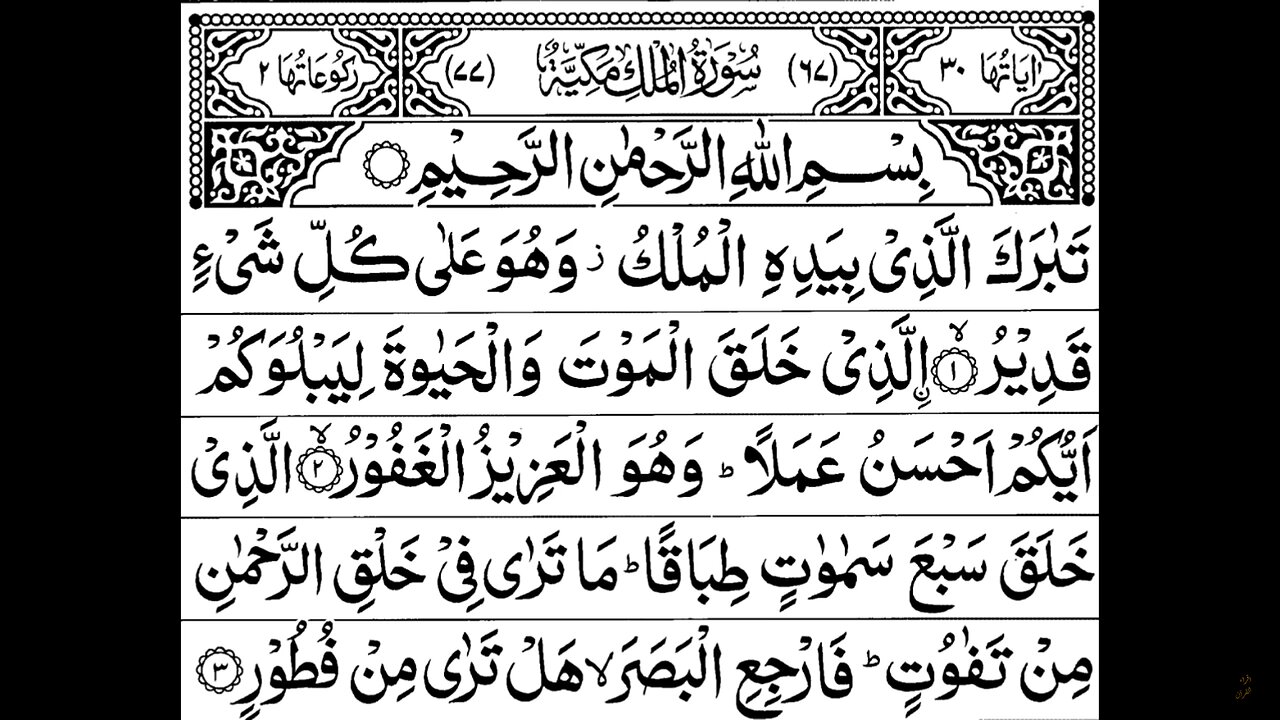 اٰيَاتُهَا ٣٠ (٦٧) سُوْرَةُ الْمُلْكِ مَكِّيَّةٌ (٧٧) رُكُوْعَاتُهَا ٢
بِسْمِ اللهِ الرَّحْمٰنِ الرَّحِيْمِ
تَبٰرَكَ الَّذِىْ بِيَدِهِ الْمُلْكُ ز وَهُوَ عَلٰى كُلِّ شَىْءٍ
قَدِيْرُ ۙ ١ ۨالَّذِىْ خَلَقَ الْمَوْتَ وَالْحَيٰوةَ لِيَبْلُوَكُمْ
اَيُّكُمْ اَحْسَنُ عَمَلًا ؕ وَهُوَ الْعَزِيْزُ الْغَفُوْرُ ۙ ٢ الَّذِىْ
خَلَقَ سَبْعَ سَمٰوٰتٍ طِبَاقًا ؕ مَا تَرٰى فِىْ خَلْقِ الرَّحْمٰنِ
مِنْ تَفٰوُتٍ ؕ فَارْجِعِ الْبَصَرَ ۙ هَلْ تَرٰى مِنْ فُطُوْرٍ ٣